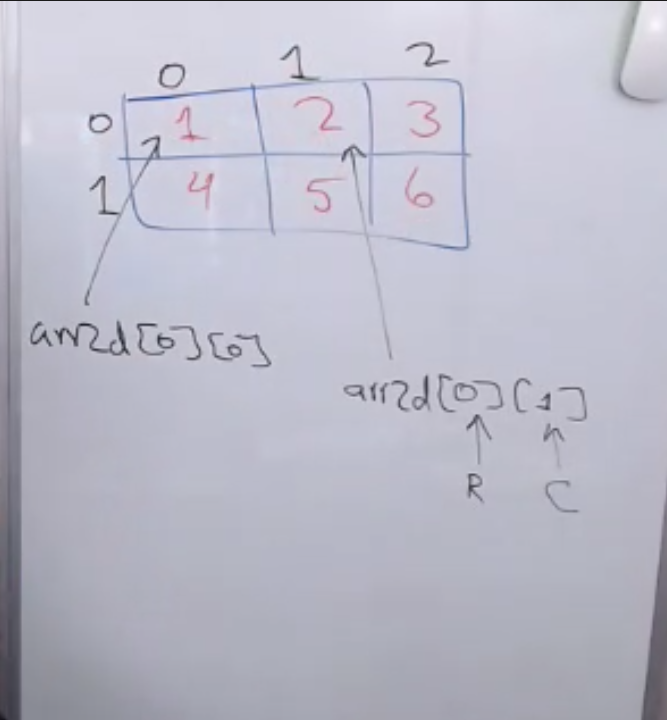 0 1 2
0 1 2 3
1 4 5 6
arr2d[0][0]
arr2d[0][1]
R C